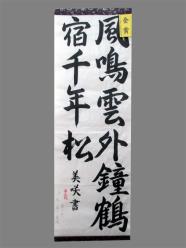 風鳴雲外鐘鶴
宿千年松
美咲書
金賞